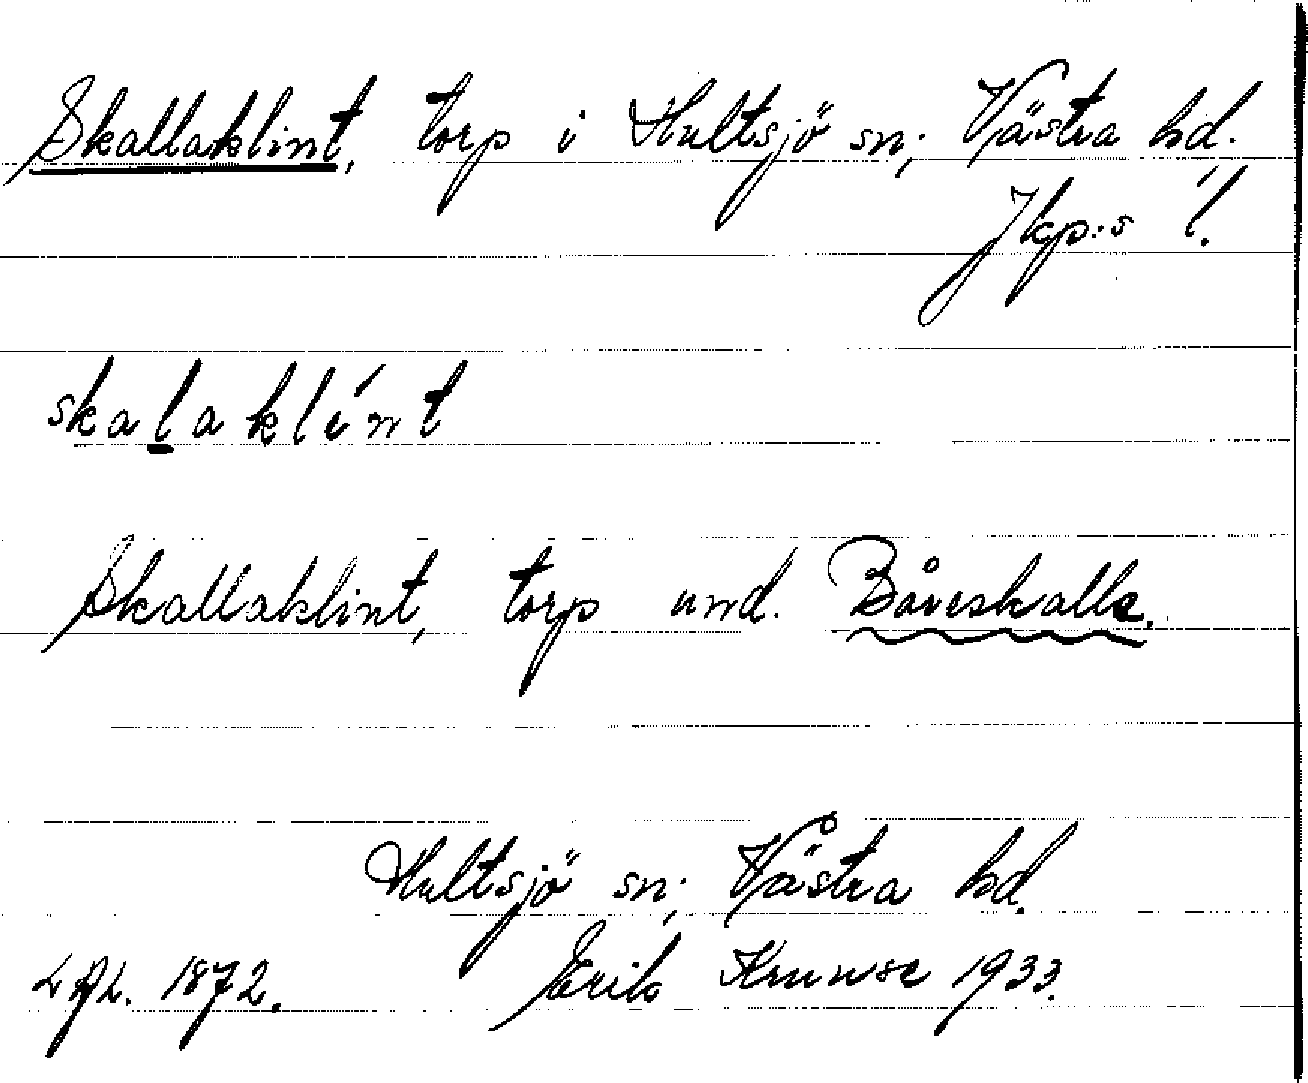 Skallaklint, torp i Hultsjö sn; Västra hd.
Jkp:s l.
skalaklínt
Skallaklint, torp und. Båreskalla.
Hultsjö sn; Västra hd.
1872. Erik 1933.